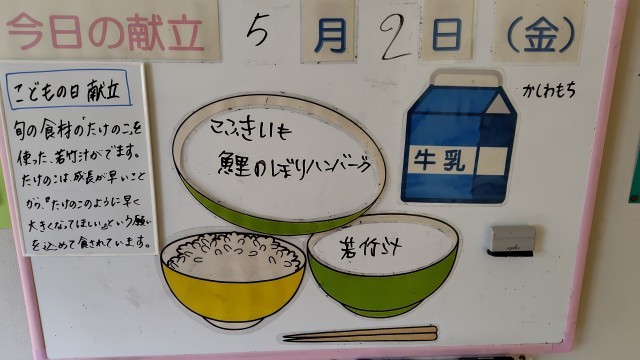 今日の献立 5月2日(金)
こどもの日 献立
旬の食材の「たけのこ」を
使った、若竹汁がでます。
たけのこは、成長が早いこと
から、『たけのこのように早く
大きくなってほしい』という願い
を込めて食されています。
こふきいも
鯉のぼりハンバーグ
牛乳
かしわもち
若竹汁